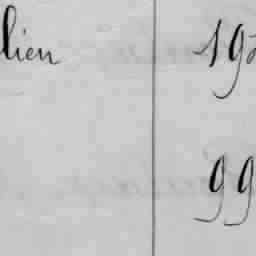 lien 192
99